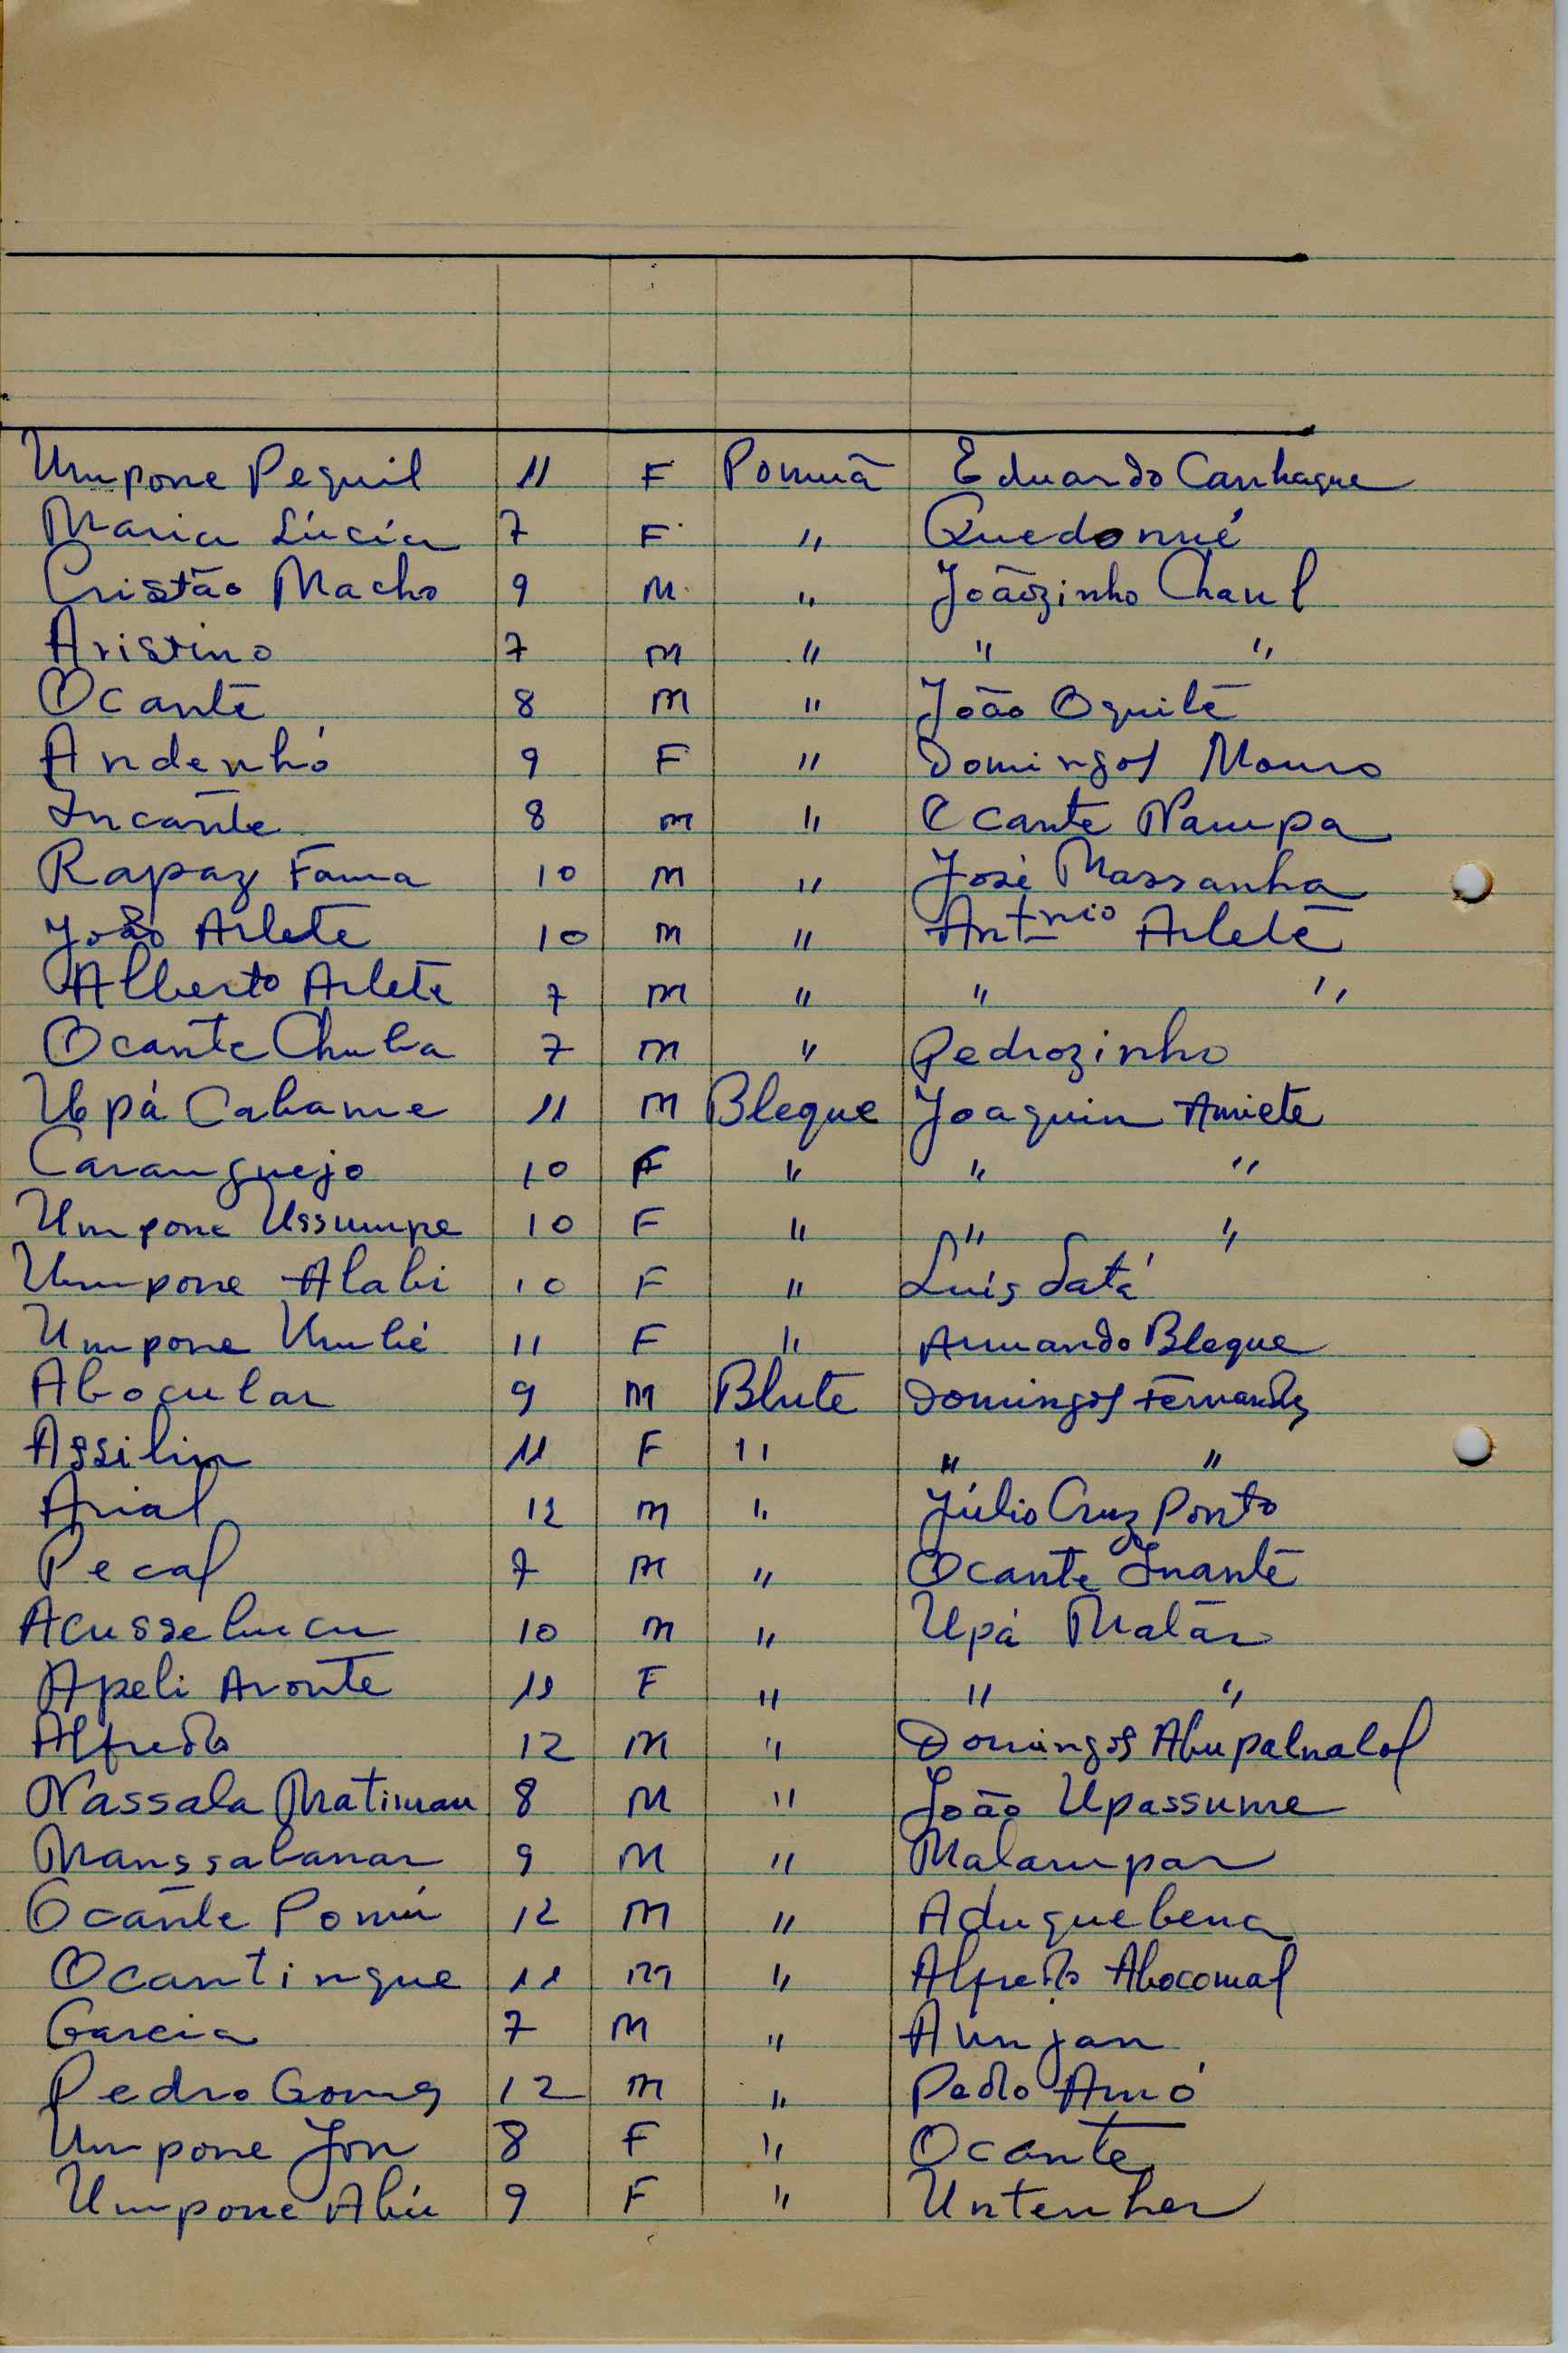 Umpone Pequil 11 F Pomuã Eduardo Canhaque
Maria Lúcia 7 F " Quedonué
Cristão Macho 9 M " Joãozinho Chaul
Aristino 7 M " " "
Ocante 8 M " João Oquite
Andenhó 9 F " Domingos Mouro
Incante 8 M " Ocante Nampa
Rapaz Fama 10 M " José Massanha
João Arlete 10 M " Antnio Arlete
Alberto Arlete 7 M " " "
Ocante Chuba 7 M " Pedrozinho
Upá Cabame 11 M Bleque Joaquim Amiete
Caranguejo 10 F " " "
Umpone Ussumpe 10 F " " "
Umpone Alabi 10 F " Luís Satá
Umpone Umbé 11 F " Armando Bleque
Abocular 9 M Blute Domingos Fernandes
Assilim 11 F " " "
Arial 12 M " Júlio Cruz Ponto
Pecal 7 M " Ocante Inante
Acussebucu 10 M " Upá Malan
Apeli Aronte 11 F " " "
Alfredo 12 M " Domingos
Nassala Matiman 8 M " João Upassume
Manssabanar 9 M " Malampar
Ocante Pomú 12 M " Aduquebena
Ocantingue 11 M " Alfredo Abocomal
Garcia 7 M " Aunjan
Pedro Gomes 12 M " Pedro Amó
Umpone Jon 8 F " Ocante
Umpone Abú 9 F " Untenher